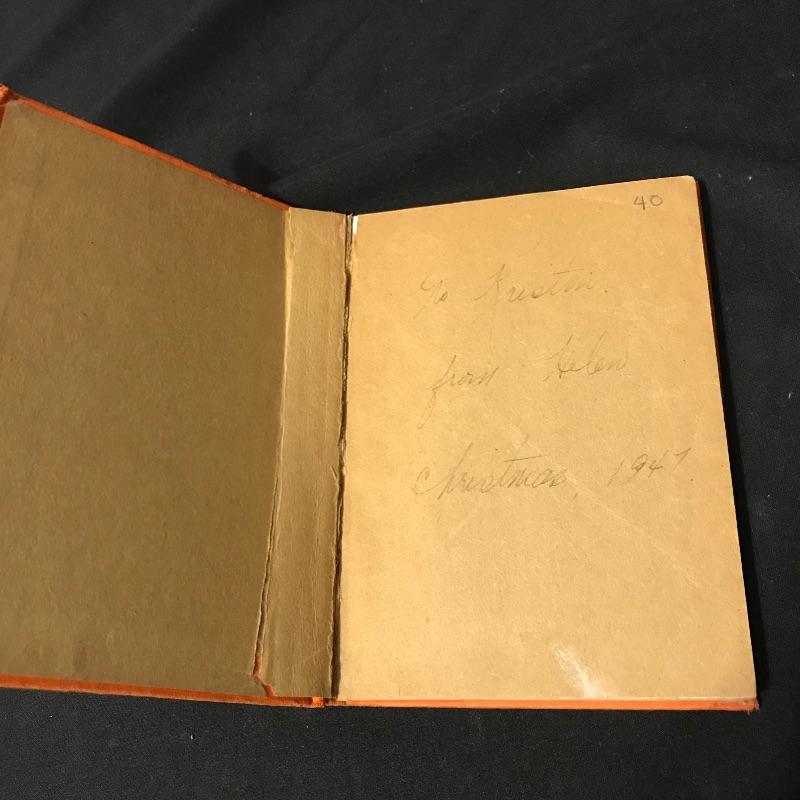 40
To Kristin.
from Helen
Christmas, 1947.